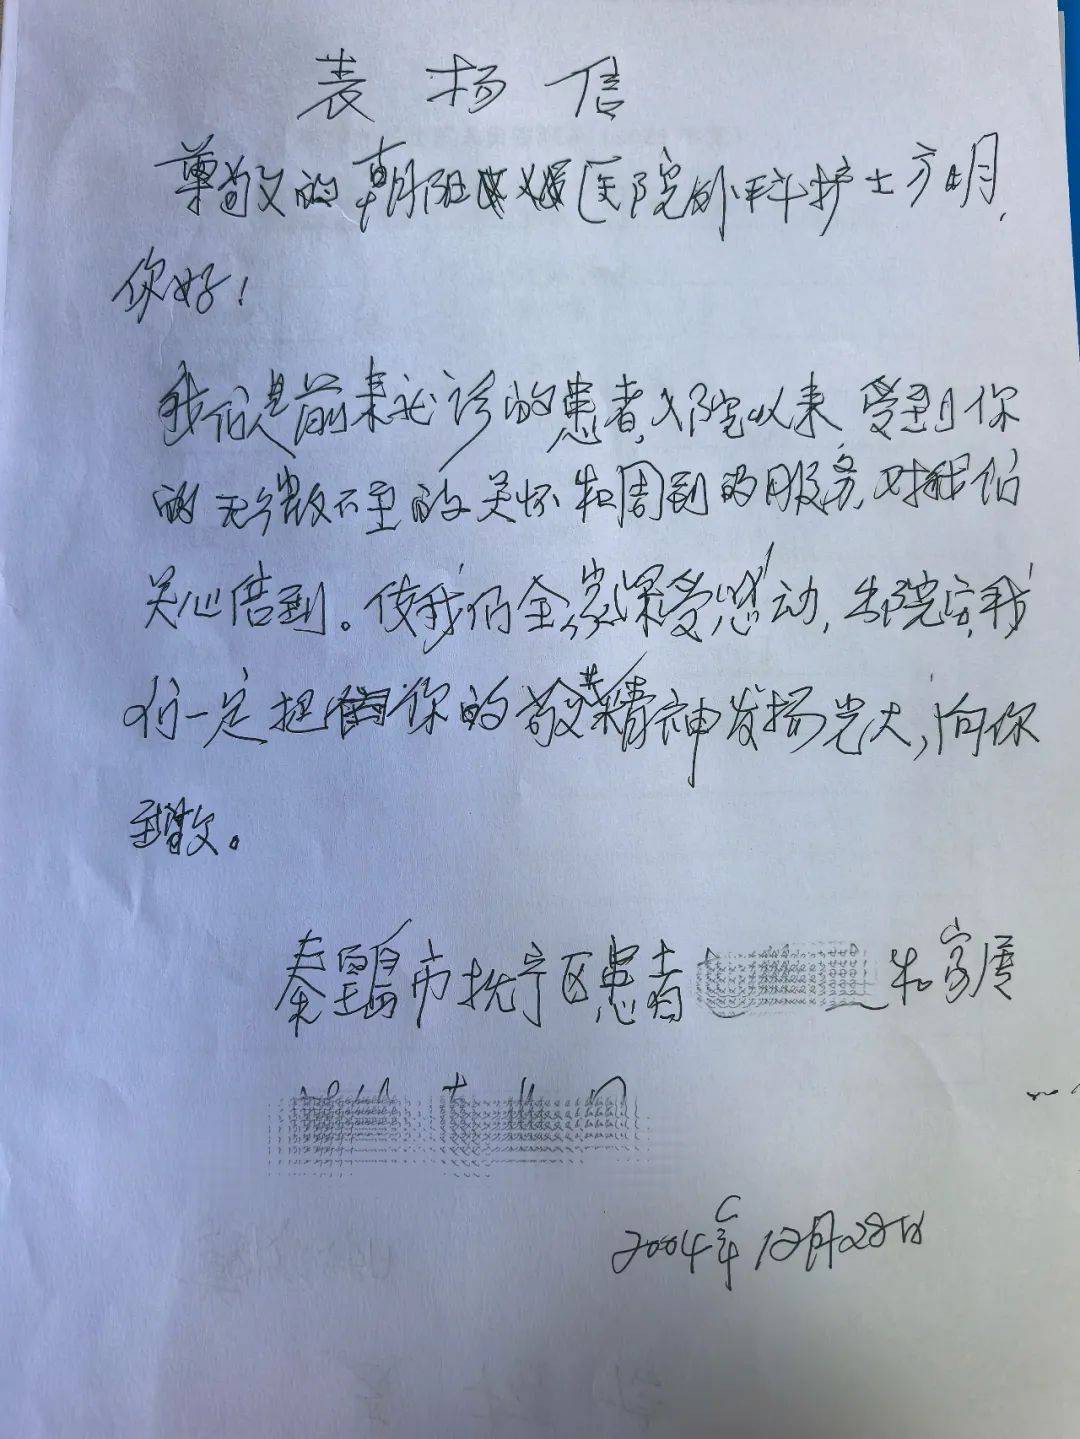 表扬信
尊敬的朝阳医院外科护士方明，
你好！
我们是前来就诊的患者，入院以来受到你
的无微不至的关怀和周到的服务，对我们
关心倍到。使我们全家深受感动，出院后，我
们一定把你的敬业精神发扬光大，向你
致敬。
秦皇岛市抚宁区患者 和家属
2004年12月28日